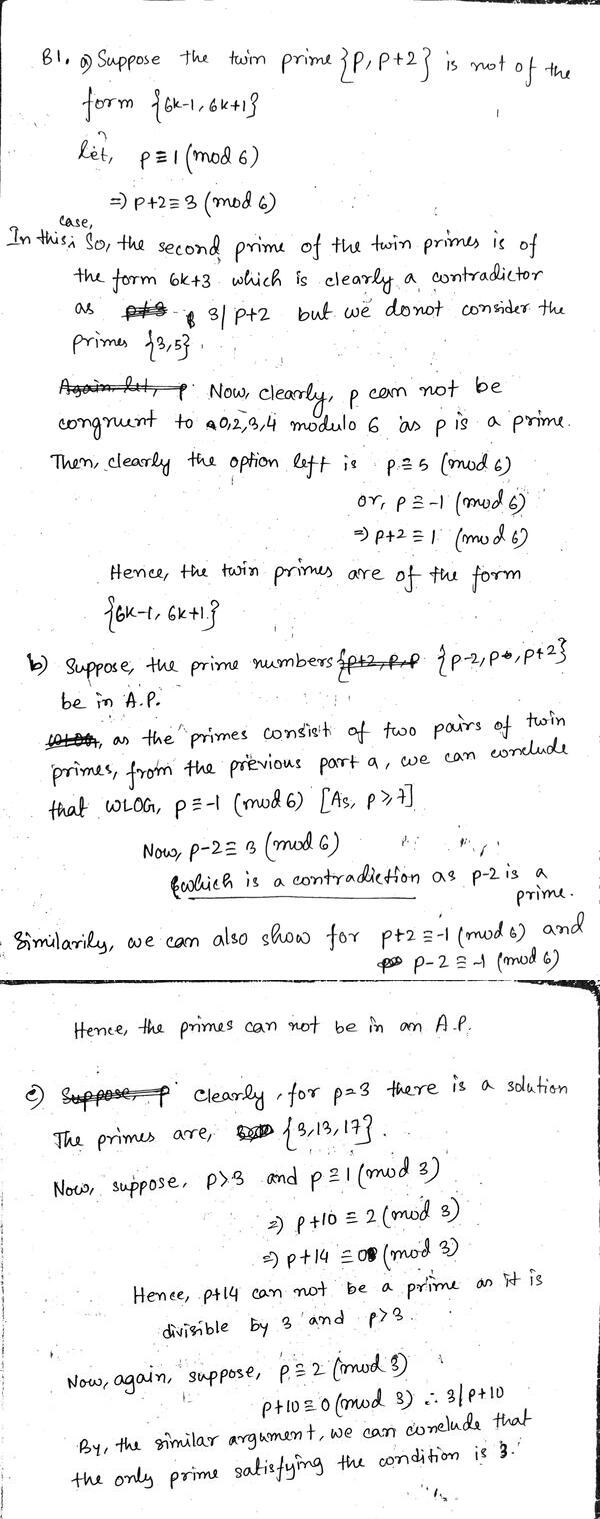 B1. a) Suppose the twin prime {P, P+2} is not of the
form {6k-1, 6k+1}
let, p ≡ 1 (mod 6)
⇒ P+2 ≡ 3 (mod 6)
case,
In this, So, the second prime of the twin primes is of
the form 6k+3 which is clearly a contradictor
as 3 | P+2 but we donot consider the
primes {3,5}.
Again let, p Now, clearly, p can not be
congruent to 0,2,3,4 modulo 6 as p is a prime.
Then, clearly the option left is p ≡ 5 (mod 6)
or, p ≡ -1 (mod 6)
⇒ p+2 ≡ 1 (mod 6)
Hence, the twin primes are of the form
{6k-1, 6k+1.}
b) Suppose, the prime numbers {p+2, p, p {p-2, p, p+2}
be in A.P.
WLOG, as the primes consist of two pairs of twin
primes, from the previous part a, we can conclude
that WLOG, p ≡ -1 (mod 6) [As, p ⩾ 7]
Now, p-2 ≡ 3 (mod 6)
which is a contradiction as p-2 is a
prime.
Similarily, we can also show for p+2 ≡ -1 (mod 6) and
p-2 ≡ -1 (mod 6)
Hence, the primes can not be in an A.P.
c) Suppose, p Clearly, for p=3 there is a solution
The primes are, {3,13,17}.
Now, suppose, p>3 and p ≡ 1 (mod 3)
⇒ p+10 ≡ 2 (mod 3)
⇒ p+14 ≡ 0 (mod 3)
Hence, p+14 can not be a prime as it is
divisible by 3 and p>3.
Now, again, suppose, p ≡ 2 (mod 3)
p+10 ≡ 0 (mod 3) ∴ 3 | p+10
By, the similar argument, we can conclude that
the only prime satisfying the condition is 3.